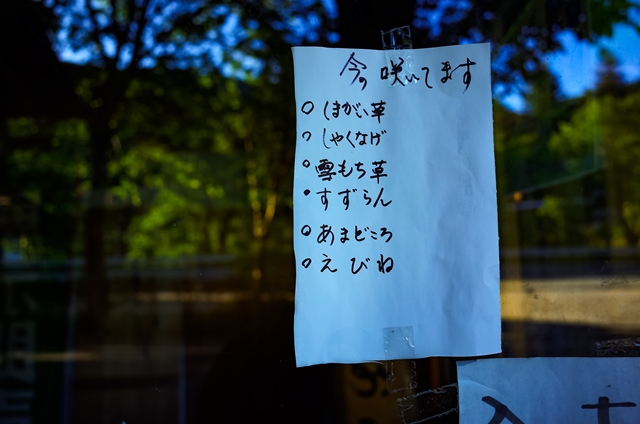 今、咲いてます
○ くまがい草
○ しゃくなげ
○ 雪もち草
・ すずらん
○ あまどころ
○ えびね